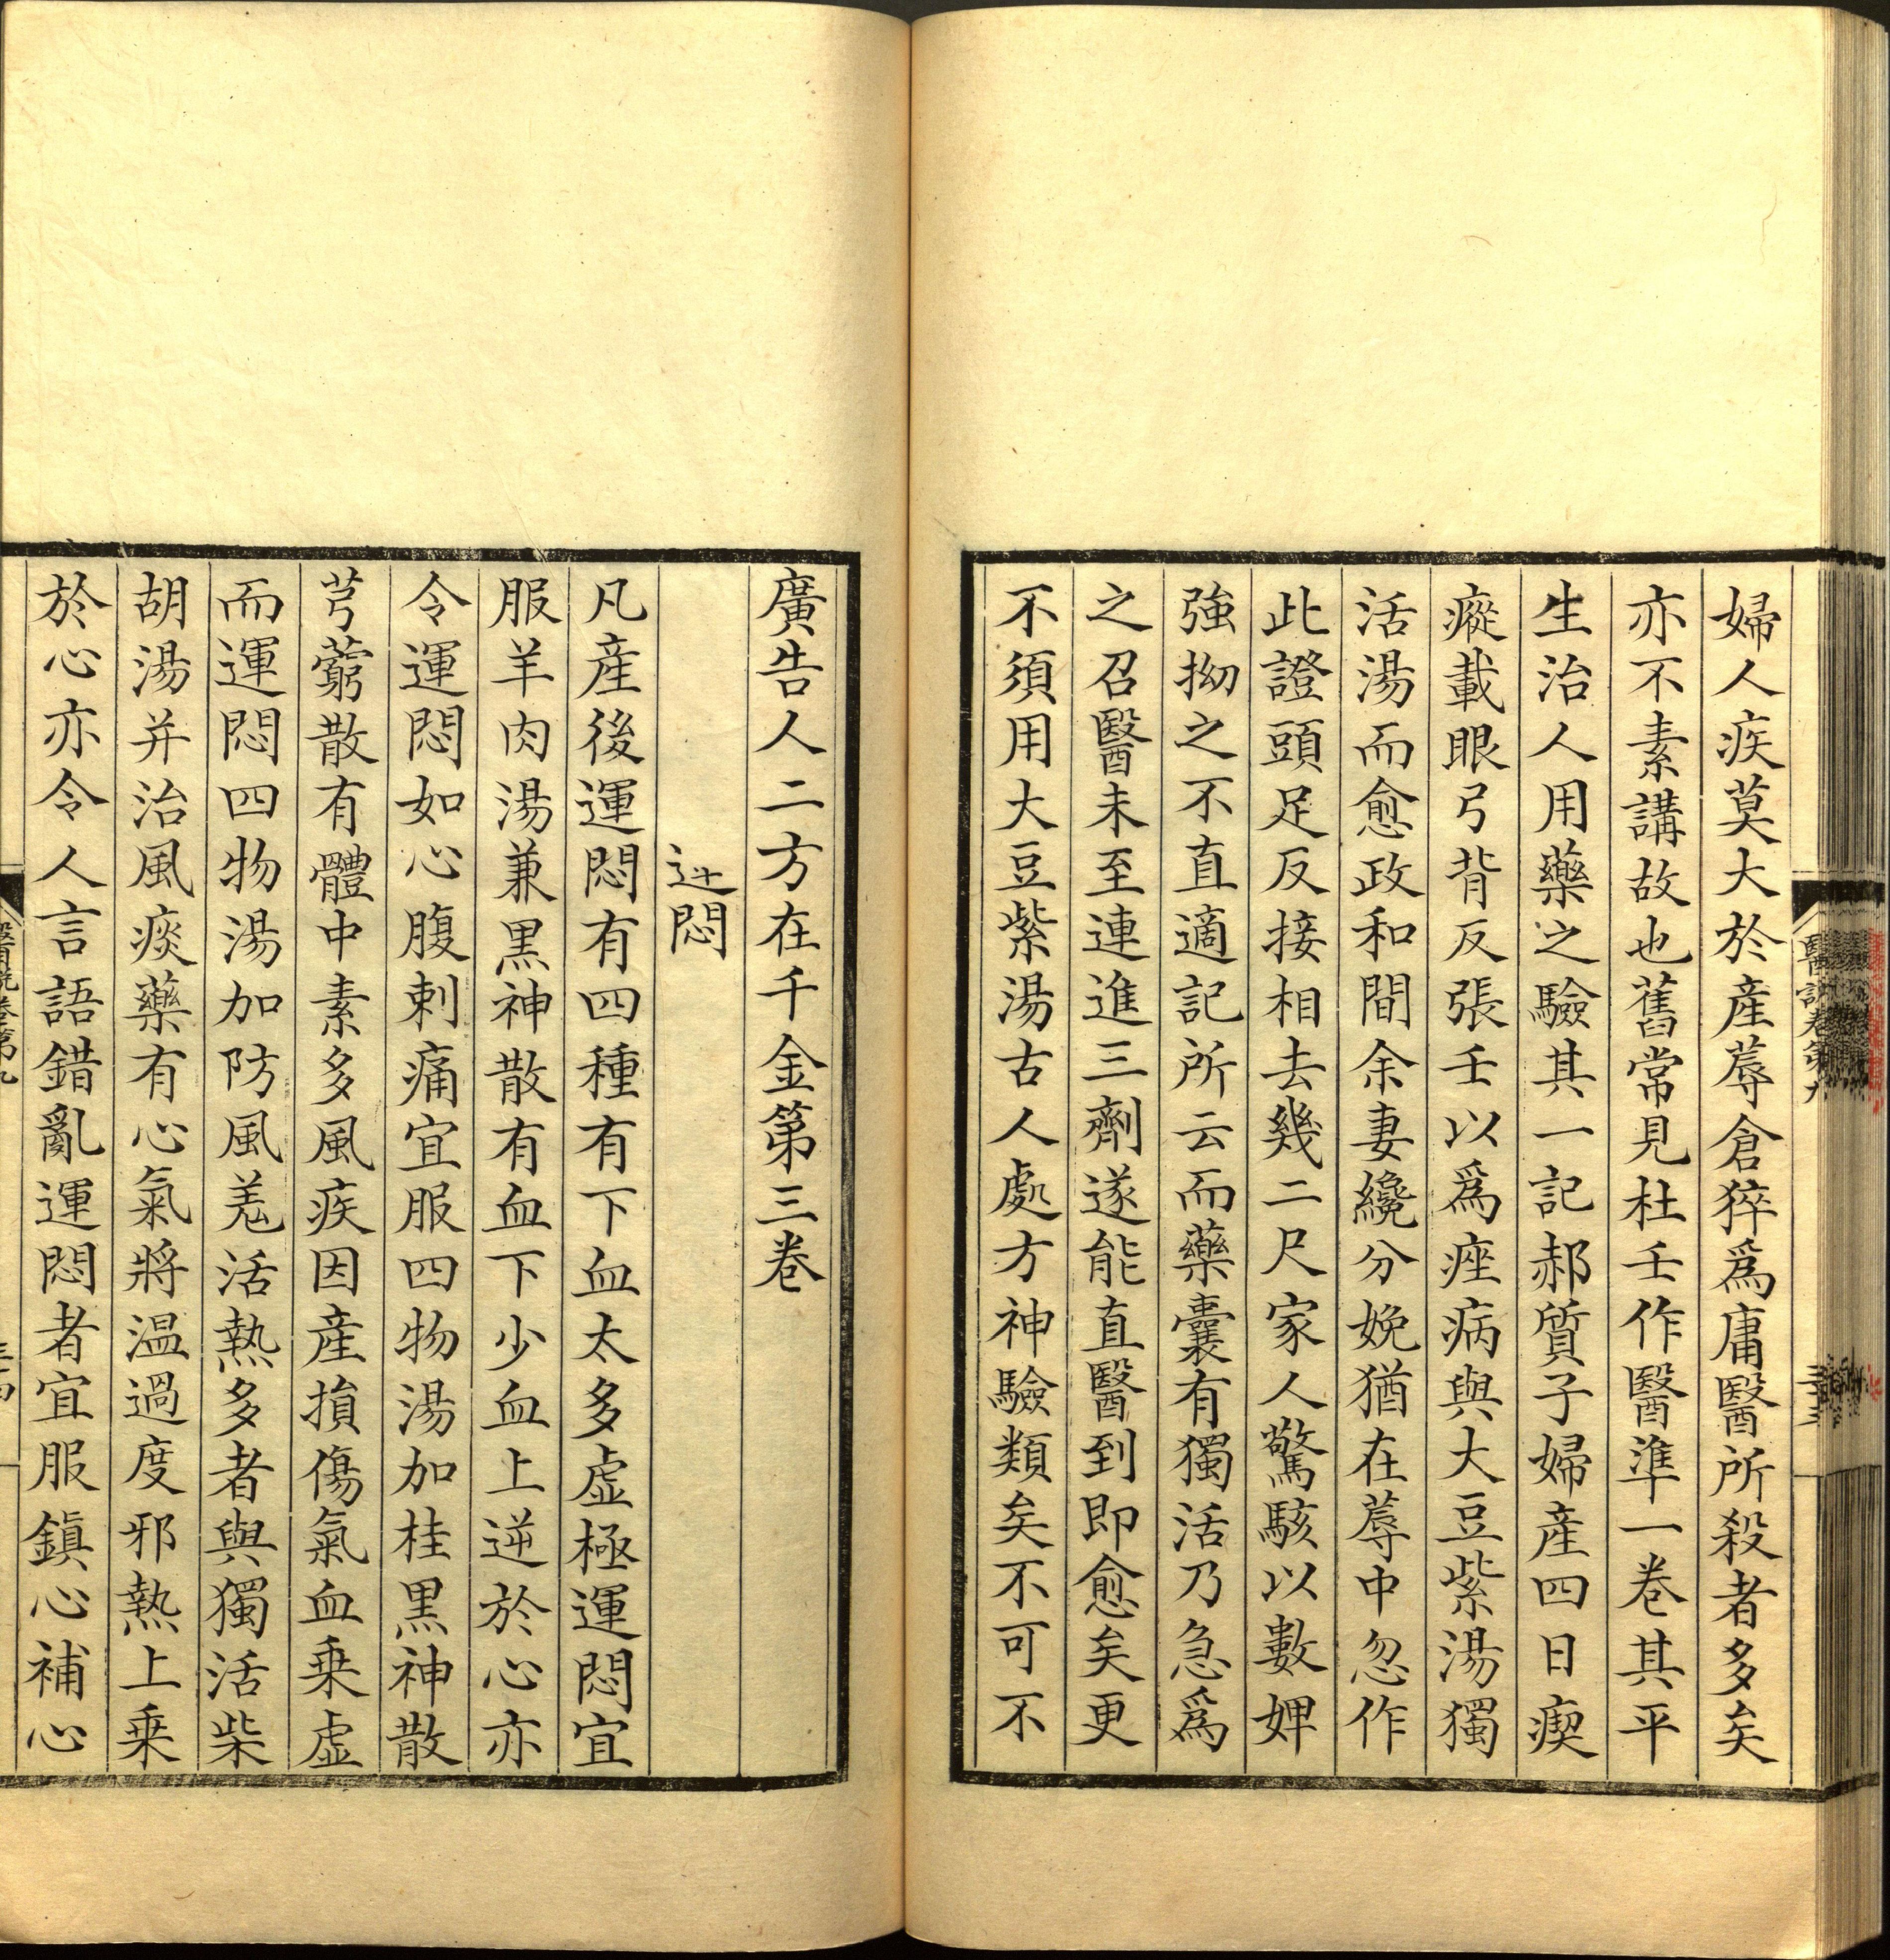 婦人疾莫大於產蓐倉猝爲庸醫所殺者多矣
亦不素講故也舊常見杜壬作醫準一卷其平
生治人用藥之驗其一記郝質子婦產四日瘈
瘲載眼弓背反張壬以爲痙病與大豆紫湯獨
活湯而愈政和間余妻纔分娩猶在蓐中忽作
此證頭足反接相去幾二尺家人驚駭以數婢
強拗之不直適記所云而藥囊有獨活乃急爲
之召醫未至連進三劑遂能直醫到即愈矣更
不須用大豆紫湯古人處方神驗類矣不可不
廣告人二方在千金第三卷
悶
凡產後運悶有四種有下血太多虛極運悶宜
服羊肉湯兼黑神散有血下少血上逆於心亦
令運悶如心腹刺痛宜服四物湯加桂黑神散
芎藭散有體中素多風疾因產損傷氣血乗虛
而運悶四物湯加防風羗活熱多者與獨活柴
胡湯并治風痰藥有心氣將溫過度邪熱上乗
於心亦令人言語錯亂運悶者宜服鎮心補心
醫說卷第九